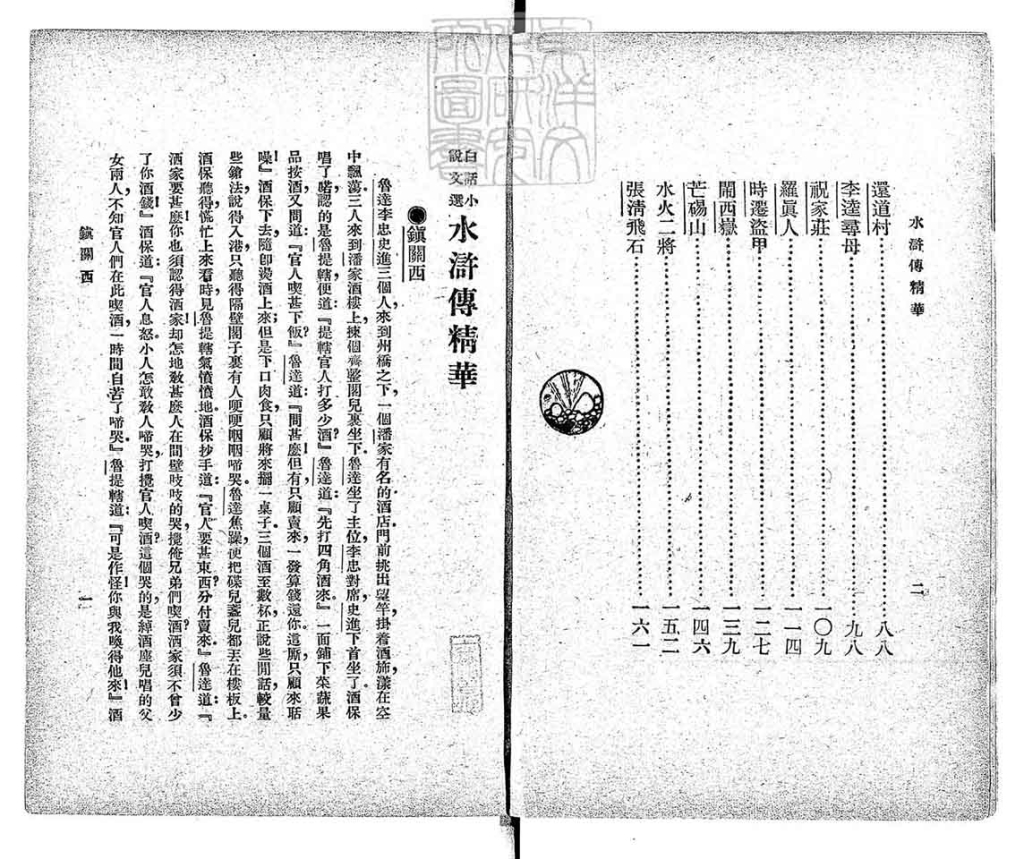 水滸傳精華
二
還道村 八八
李逵尋母 九八
祝家莊 一〇九
羅眞人 一一四
時遷盜甲 一二七
鬧西嶽 一三九
芒碭山 一四六
水火二將 一五二
張淸飛石 一六一
白話小說文選 水滸傳精華
●鎭關西
魯達李忠史進三個人,來到州橋之下,一個潘家有名的酒店門前挑出望竿,掛着酒斾,漾在空
中飄蕩.三人來到潘家酒樓上,揀個齊整閣兒裏坐下.魯達坐了主位,李忠對席,史進下首坐了.酒保
唱了喏,認的是魯提轄便道:『提轄官人打多少酒?』魯達道:『先打四角酒來.』一面鋪下菜蔬果
品按酒,又問道:『官人喫甚下飯?』魯達道:『問甚麼!但有,只顧賣來,一發算錢還你.這廝只顧來聒
噪!』酒保下去,隨卽燙酒上來;但是下口肉食,只顧將來擺一桌子.三個酒至數杯,正說些閒話,較量
些鎗法,說得入港,只聽得隔壁閣子裏有人哽哽咽咽啼哭.魯達焦躁,便把碟兒盞兒都丟在樓板上.
酒保聽得,慌忙上來看時,見魯提轄氣憤憤地.酒保抄手道:『官人要甚東西?分付賣來.』魯達道:『
洒家要甚麼!你也須認得洒家!却怎地敎甚麼人在間壁吱吱的哭,攪俺兄弟們喫酒?洒家須不曾少
了你酒錢!』酒保道:『官人息怒.小人怎敢敎人啼哭,打攪官人喫酒?這個哭的是綽酒座兒唱的父
女兩人,不知官人們在此喫酒,一時間自苦了啼哭.』魯提轄道:『可是作怪!你與我喚得他來!』酒
鎭關西
一